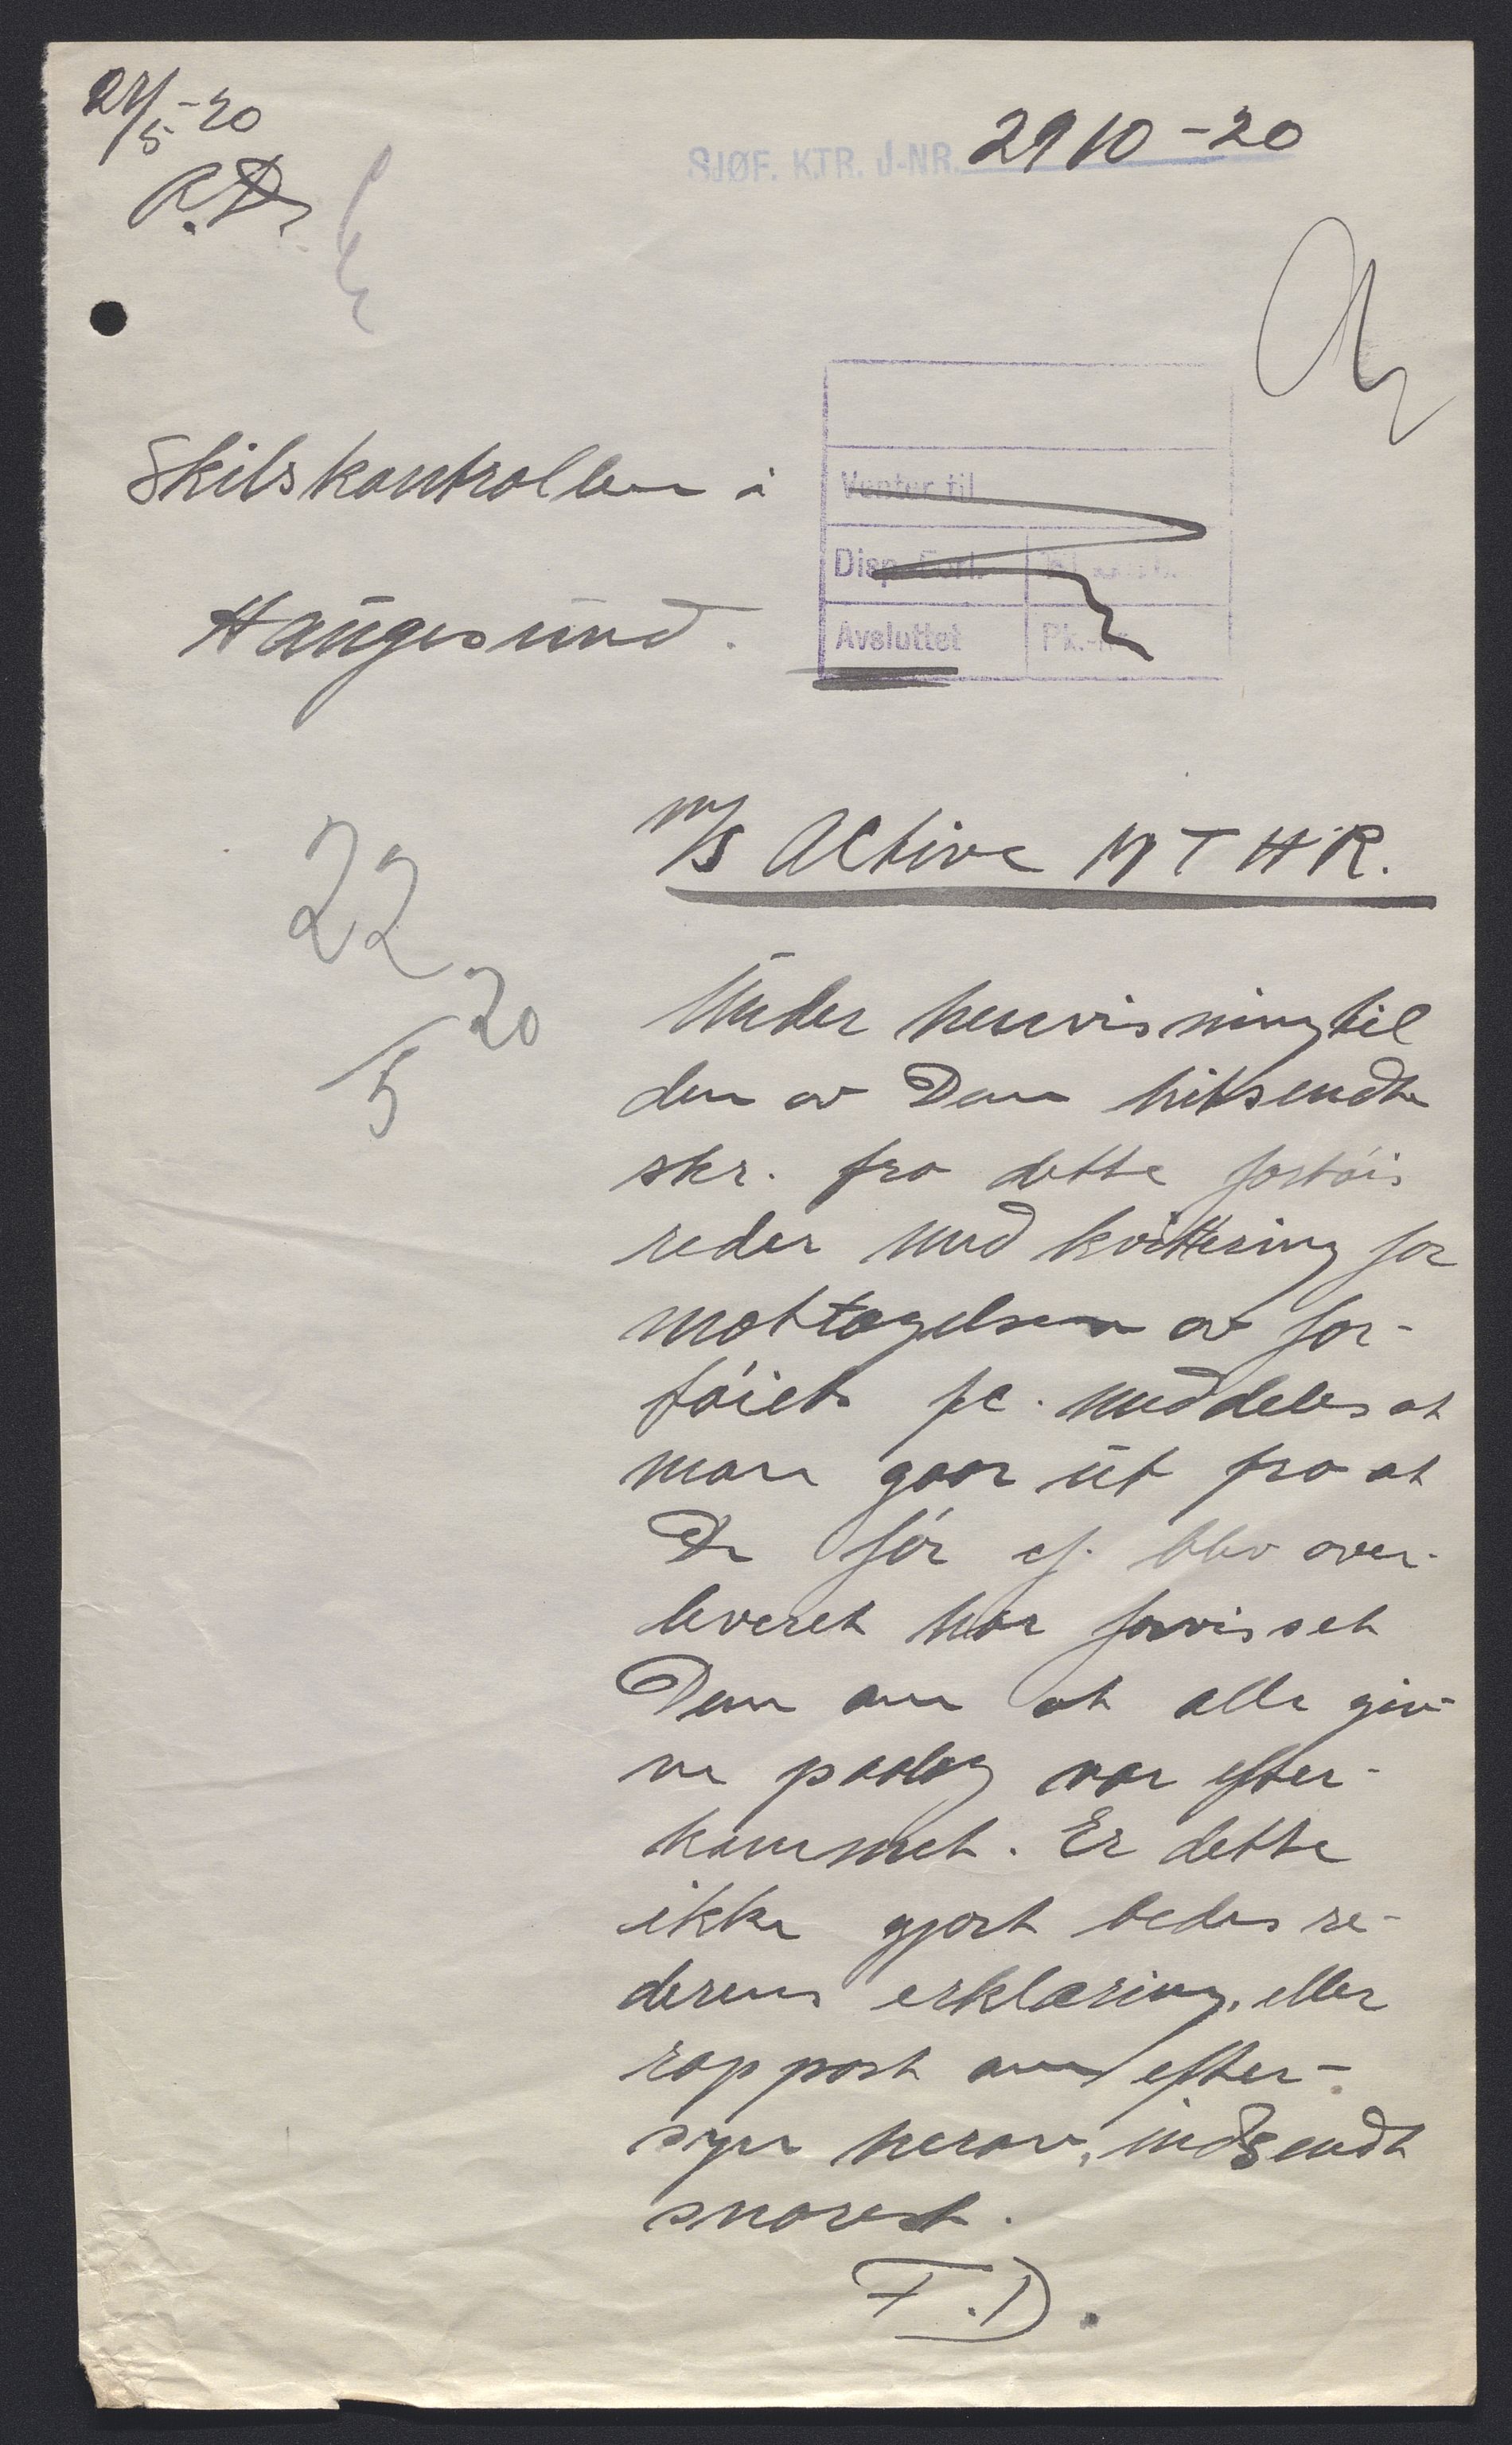 21/5-20
SJØF. KTR. J-NR. 2910-20
Skibskontrollen i
Haugesund.
Venter til
Avsluttet
22/5 20
m/s Active MTHR.
Under henvisning til
den av Dem hitsendte
skr. fra dette fartøis
reder med kvittering for
mottagelsen av far-
tøiets fc. meddeles at
man gaar ut fra at
De før cf. blev over-
leveret har forvisset
Dem om at alle giv-
ne paalæg var efter-
kommet. Er dette
ikke gjort bedes re-
derens erklæring, eller
rapport om efter-
syn herav, indsendt
snarest.
F.D.